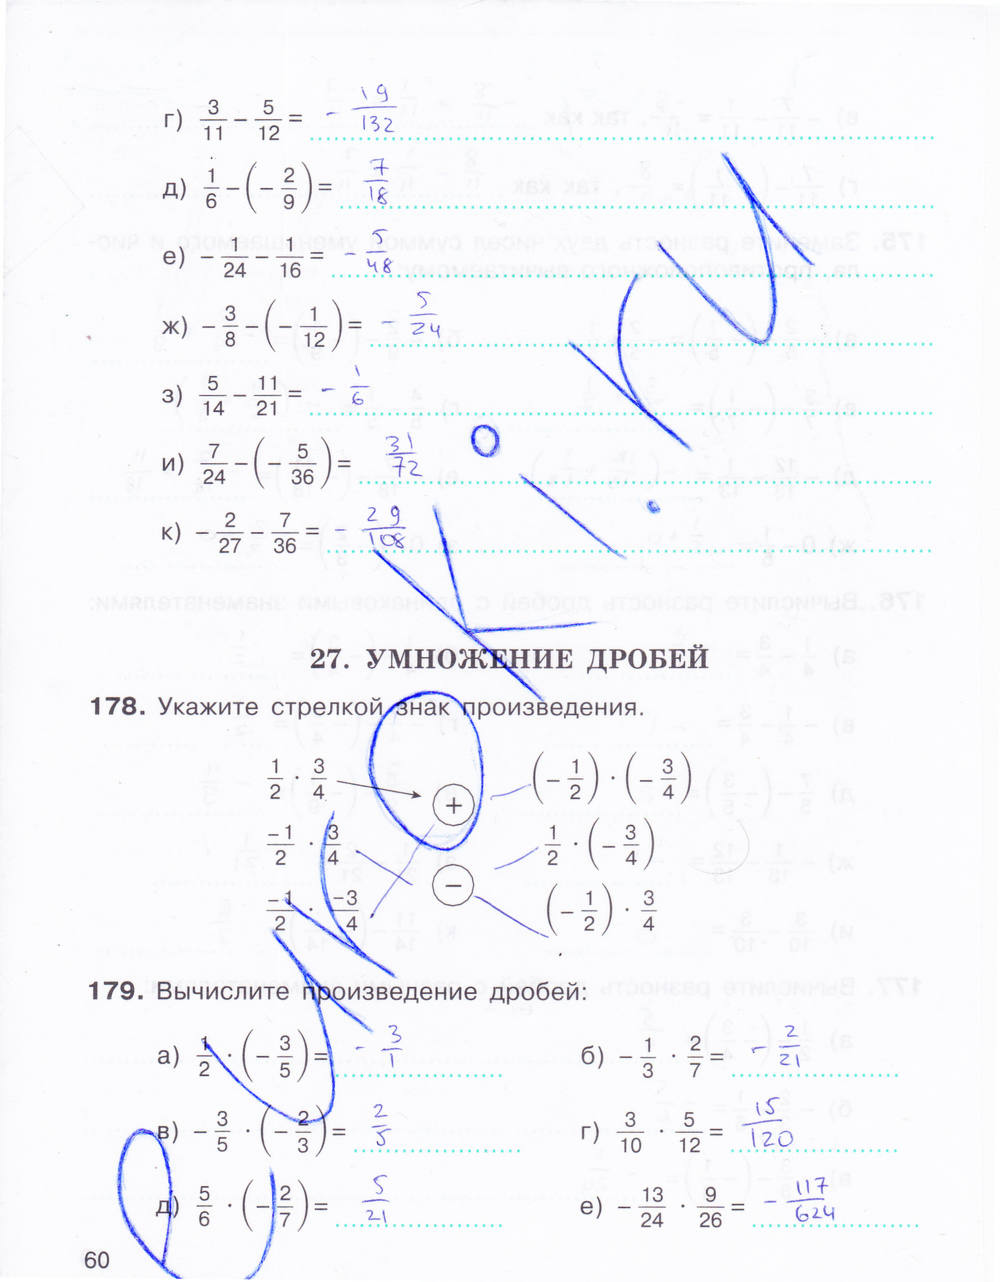 г) 3/11 − 5/12 = − 19/132
д) 1/6 − (− 2/9) = 7/18
е) − 1/24 − 1/16 = − 5/48
ж) − 3/8 − (− 1/12) = − 5/24
з) 5/14 − 11/21 = − 1/6
и) 7/24 − (− 5/36) = 31/72
к) − 2/27 − 7/36 = − 29/108
27. УМНОЖЕНИЕ ДРОБЕЙ
178. Укажите стрелкой знак произведения.
1/2 · 3/4 + (− 1/2) · (− 3/4)
−1/2 · 3/4 1/2 · (− 3/4)
−1/2 · −3/4 − (− 1/2) · 3/4
179. Вычислите произведение дробей:
а) 1/2 · (− 3/5) = − 3/1 б) − 1/3 · 2/7 = − 2/21
в) − 3/5 · (− 2/3) = 2/5 г) 3/10 · 5/12 = 15/120
д) 5/6 · (− 2/7) = 5/21 е) − 13/24 · 9/26 = − 117/624
60